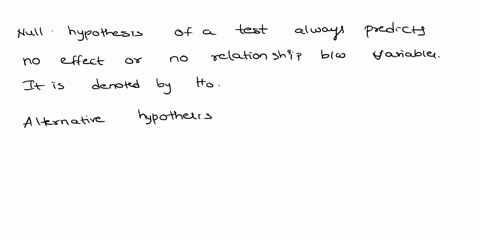 Null hypothesis of a test always predicts
no effect or no relationship b/w variables.
It is denoted by Ho.
Alternative hypothesis